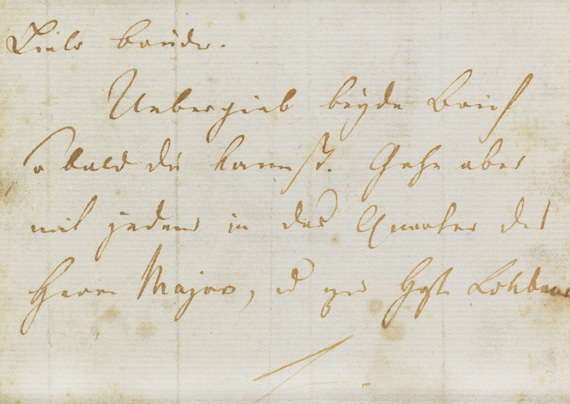 Lieber bruder.
Uebergieb beyde Brief
so bald du kannst. Gehe aber
mit jedem in das Quartier des
Herrn Major, u zu